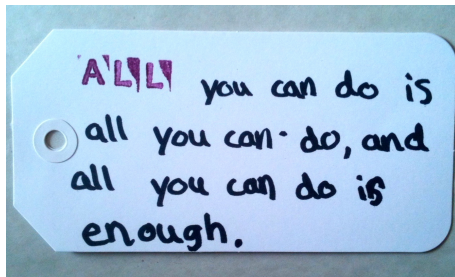 ALL you can do is
all you can do, and
all you can do is
enough.